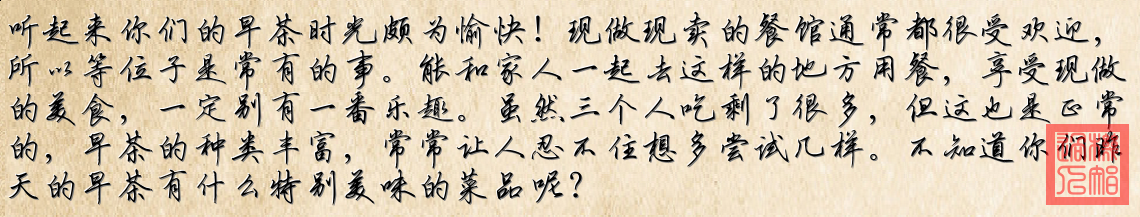 听起来你们的早茶时光颇为愉快！现做现卖的餐馆通常都很受欢迎，
所以等位子是常有的事。能和家人一起去这样的地方用餐，享受现做
的美食，一定别有一番乐趣。虽然三个人吃剩了很多，但这也是正常
的，早茶的种类丰富，常常让人忍不住想多尝试几样。不知道你们昨
天的早茶有什么特别美味的菜品呢？